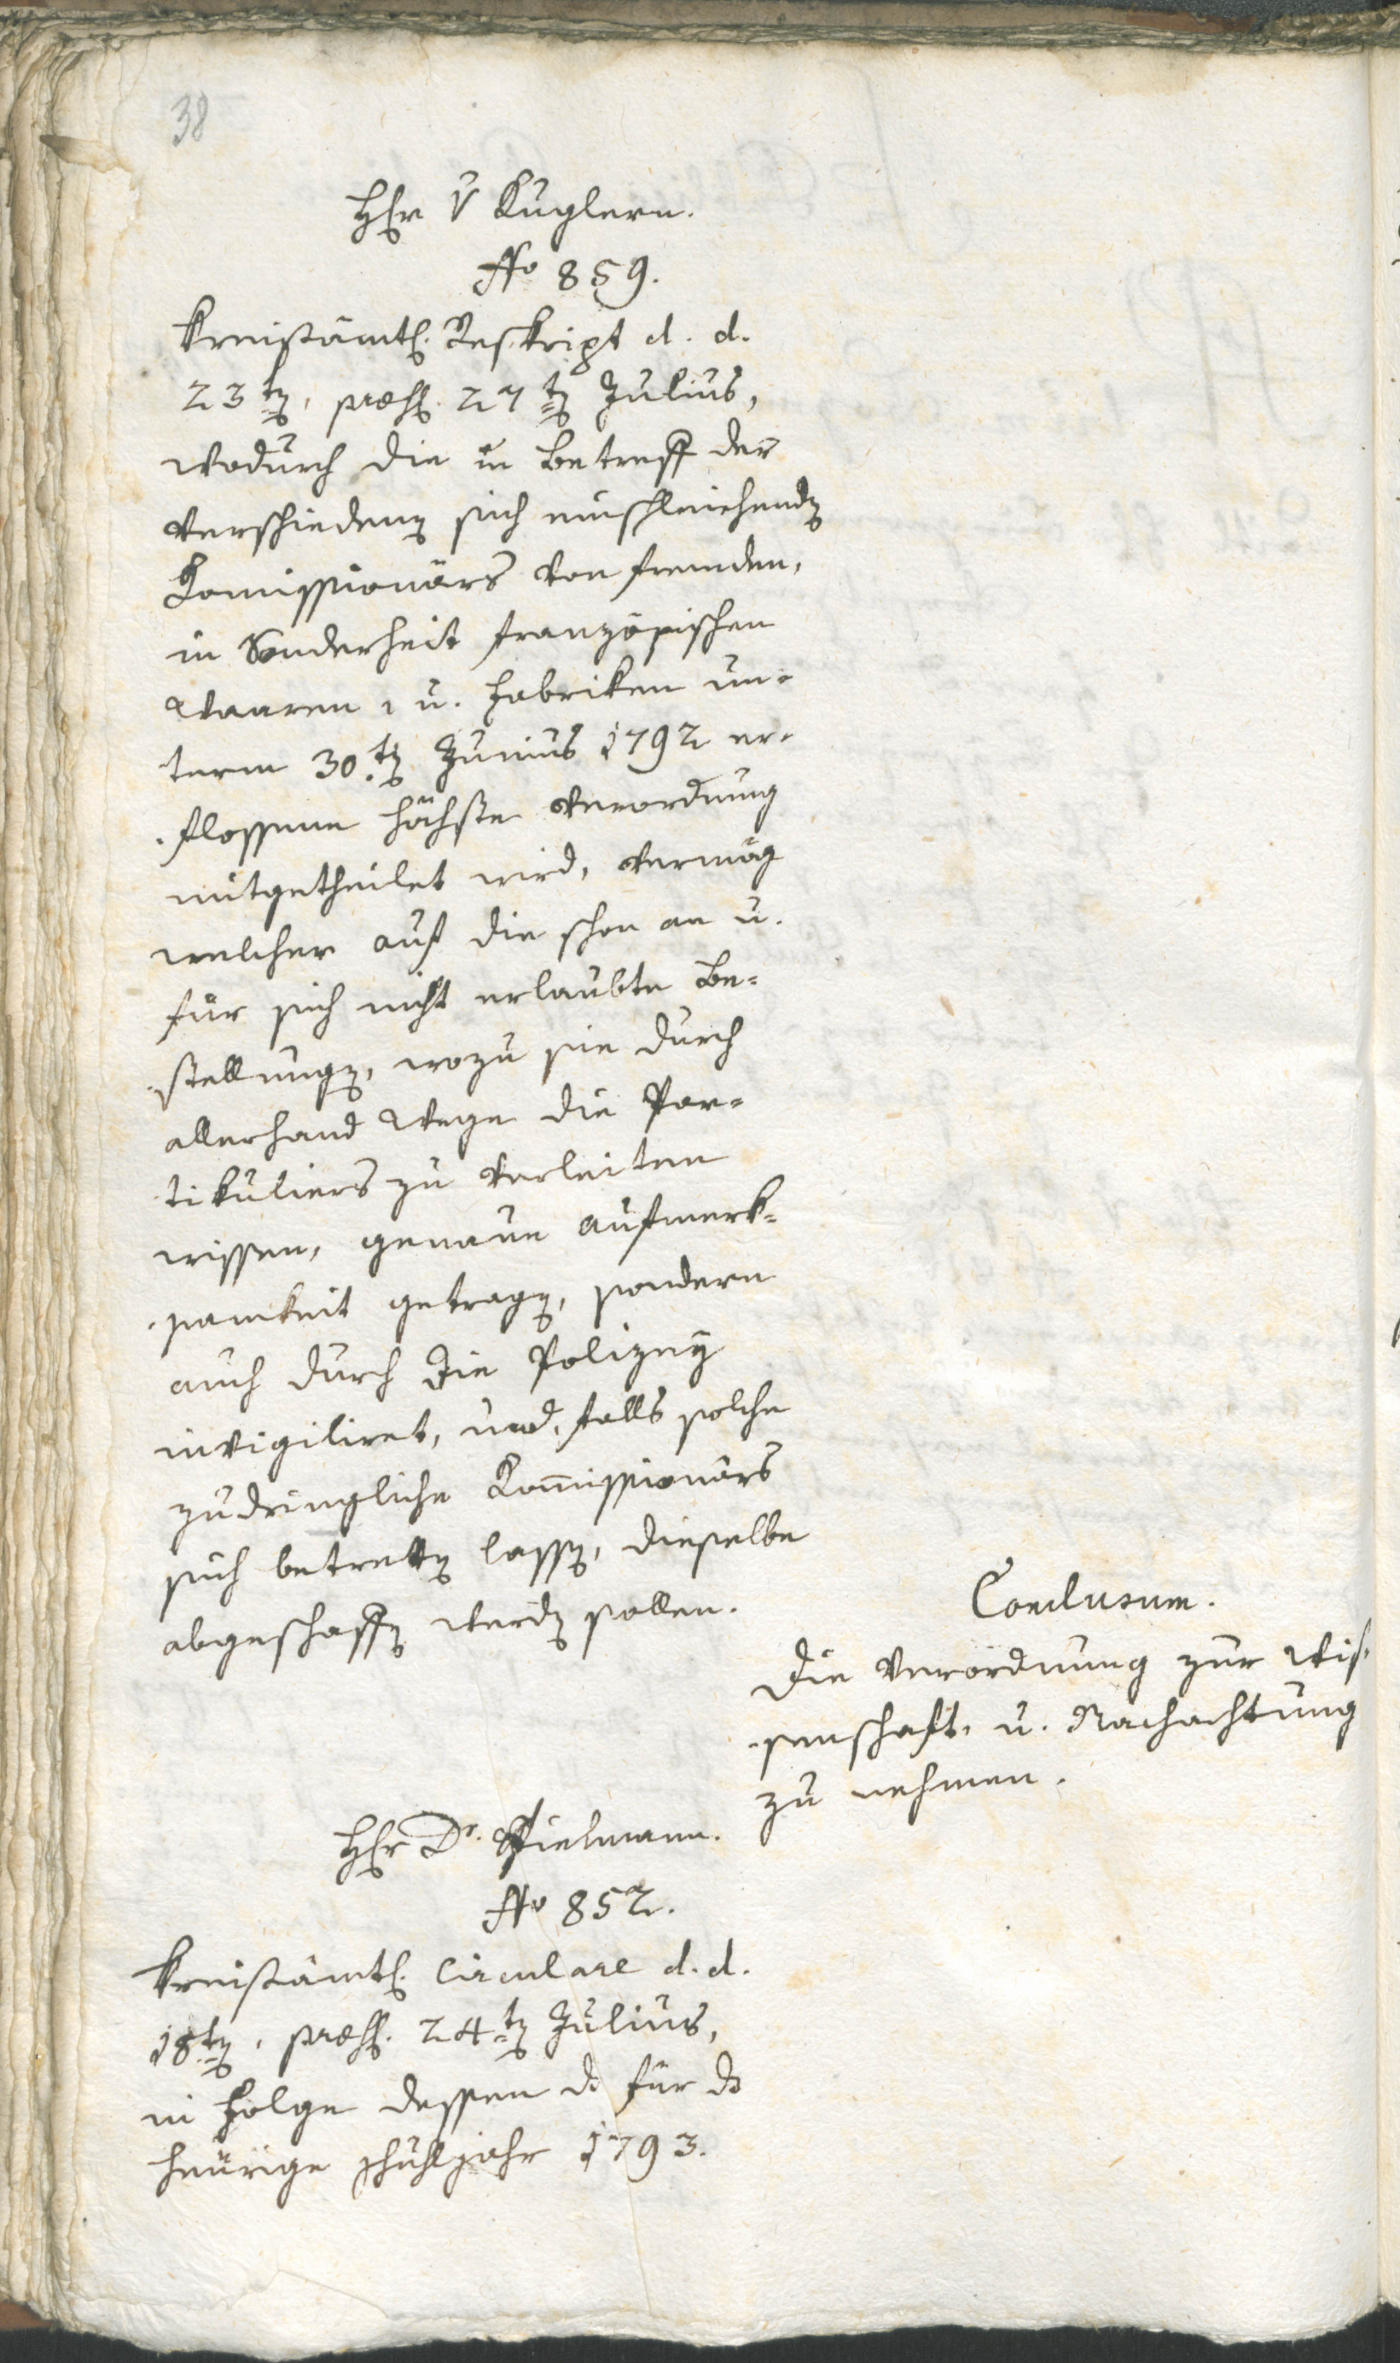 38
Hr v Kuglern.
No 859.
Kreisämtl. Reskript d. d.
23ten, præs. 27ten Julius,
wodurch die in Betreff der
verschiedenen sich einschleichenden
Komissionärs von fremden,
in Sonderheit französischen
Waaren, u. Fabriken un=
term 30ten Junius 1792 er=
flossene höchste Verordnung
mitgetheilet wird, vermög
welcher auf die schon an u.
für sich nicht erlaubte Be=
stellungen, wozu sie durch
allerhand Wege die Par=
tikuliers zu verleiten
wissen, genaue Aufmerk=
samkeit getragen, sondern
auch durch die Polizey
invigiliret, und, falls solche
zudringliche Kom̅issionärs
sich betretten lassen, dieselbe
abgeschaffen werden sollen.
Conclusum.
Die Verordnung zur Wis=
senschaft, u. Nachachtung
zu nehmen.
Hr Dr. Spielmann.
No 852.
Kreisämtl. Circulare d. d.
18ten, præs. 24ten Julius,
in Folge dessen das für das
heurige Schuljahr 1793.